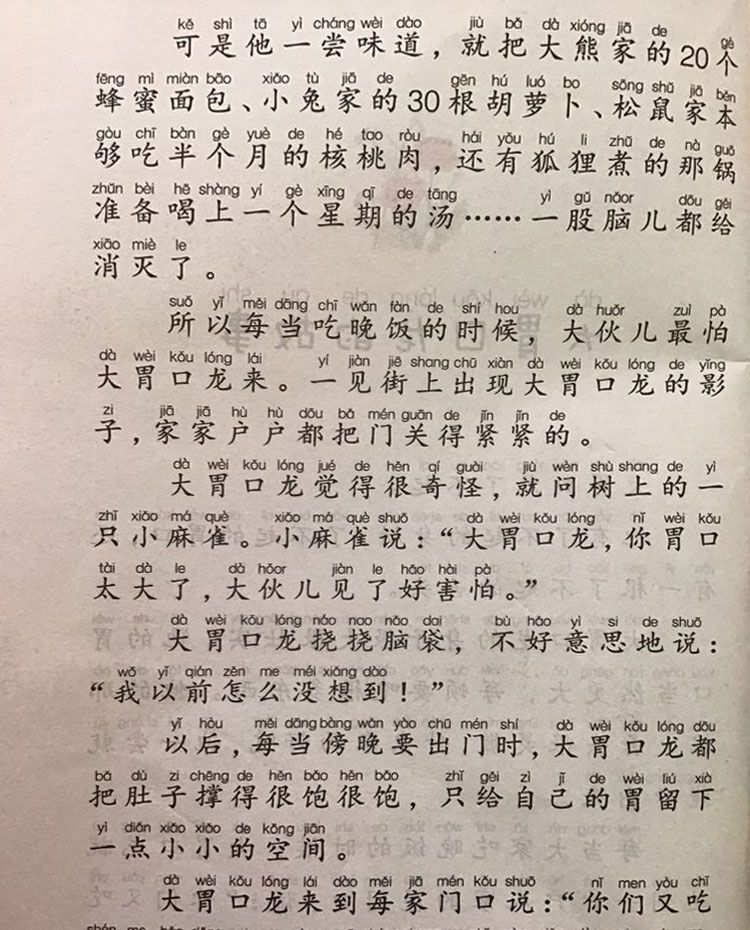 kě shì tā yì cháng wèi dào jiù bǎ dà xióng jiā de gè
可是他一尝味道，就把大熊家的20个
fēng mì miàn bāo xiǎo tù jiā de gēn hú luó bo sōng shǔ jiā běn
蜂蜜面包、小兔家的30根胡萝卜、松鼠家本
gòu chī bàn gè yuè de hé tao ròu hái yǒu hú li zhǔ de nà guō
够吃半个月的核桃肉，还有狐狸煮的那锅
zhǔn bèi hē shàng yí gè xīng qī de tāng yì gǔ nǎor dōu gěi
准备喝上一个星期的汤……一股脑儿都给
xiāo miè le
消灭了。
suǒ yǐ měi dāng chī wǎn fàn de shí hou dà huǒr zuì pà
所以每当吃晚饭的时候，大伙儿最怕
dà wèi kǒu lóng lái yí jiàn jiē shang chū xiàn dà wèi kǒu lóng de yǐng
大胃口龙来。一见街上出现大胃口龙的影
zi jiā jiā hù hù dōu bǎ mén guān de jǐn jǐn de
子，家家户户都把门关得紧紧的。
dà wèi kǒu lóng jué de hěn qí guài jiù wèn shù shang de yì
大胃口龙觉得很奇怪，就问树上的一
zhī xiǎo má què xiǎo má què shuō dà wèi kǒu lóng nǐ wèi kǒu
只小麻雀。小麻雀说：“大胃口龙，你胃口
tài dà le dà hǒor jiàn le hǎo hài pà
太大了，大伙儿见了好害怕。”
dà wèi kǒu lóng náo nao nǎo dai bù hǎo yì si de shuō
大胃口龙挠挠脑袋，不好意思地说：
wǒ yǐ qián zěn me méi xiǎng dào
“我以前怎么没想到！”
yǐ hòu měi dāng bàng wǎn yào chū mén shí dà wèi kǒu lóng dōu
以后，每当傍晚要出门时，大胃口龙都
bǎ dù zi chēng de hěn bǎo hěn bǎo zhǐ gěi zì jǐ de wèi liú xià
把肚子撑得很饱很饱，只给自己的胃留下
yì diǎn xiǎo xiǎo de kōng jiān
一点小小的空间。
dà wèi kǒu lóng lái dào měi jiā mén kǒu shuō nǐ men yòu chī
大胃口龙来到每家门口说：“你们又吃